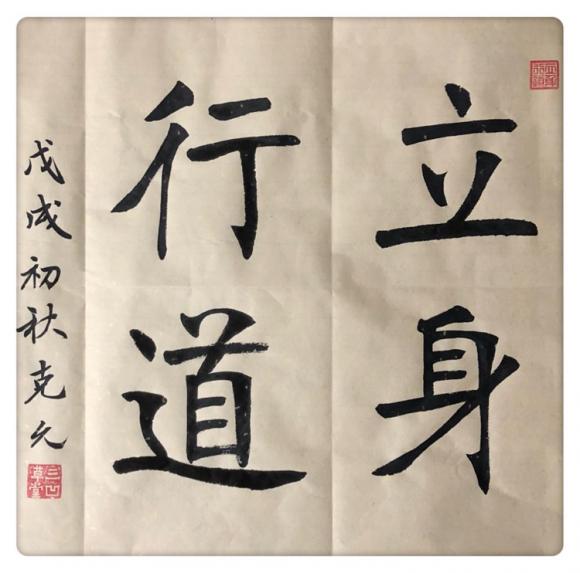 立身
行道
戊戌初秋克